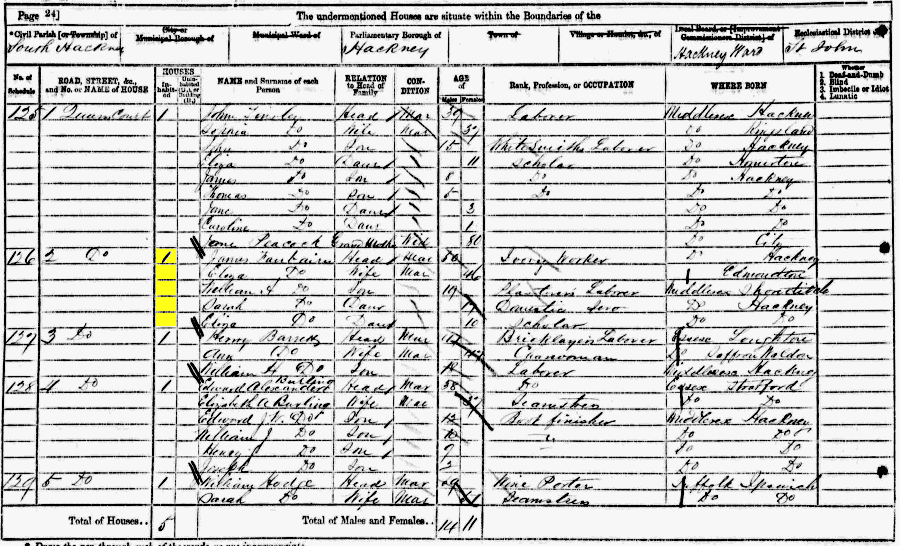 Page 24] The undermentioned Houses are situate within the Boundaries of the
*Civil Parish [or Township] of City or Municipal Borough of Municipal Ward of Parliamentary Borough of Town of Village or Hamlet, &c., of Local Board, or [Improvement Commissioners District] of Ecclesiastical District of
South Hackney Hackney Hackney Ward St John
No. of Schedule ROAD, STREET, &c., and No. or NAME of HOUSE HOUSES Inhabited Uninhabited (U.), or Building (B.) NAME and Surname of each Person RELATION to Head of Family CONDITION AGE of Males Females Rank, Profession, or OCCUPATION WHERE BORN Whether 1. Deaf-and-Dumb 2. Blind 3. Imbecile or Idiot 4. Lunatic
125 1 Queen Court 1 John Head Mar 39 Laborer Middlesex Hackney
Sophia Do Wife Mar 37 Do Kingsland
John Do Son 15 Whitesmiths Laborer Do Hackney
Eliza Do Daur 11 Scholar Do
James Do Son 8 Do Do Hackney
Thomas Do Son 5 Do Do Do
Jane Do Daur 3 Do Do
Caroline Do Daur 1 Do Do
Jane Peacock Grand Mother Wid 80 Do City
126 2 Do 1 James Head Mar 50 Ivory Worker Do Hackney
Eliza Do Wife Mar 46 Edmonton
William A Do Son 19 Laborer Middlesex
Sarah Do Daur 17 Domestic Serv Do Hackney
Eliza Do Daur 10 Scholar Do Do
127 3 Do 1 Henry Barrett Head Mar Bricklayers Laborer Essex
Ann Do Wife Mar Charwoman Do Saffron Walden
William H Do Son 14 Laborer Middlesex Hackney
128 4 Do 1 Edward Alexander Burling Head Mar 38 Do Essex Stratford
Elizabeth A Burling Wife Mar 37 Seamstress Do Do
Edward J W Do Son 12 Boot finisher Middlesex Hackney
William J Do Son 10 " Do Do
Henry Do Son 9 Do Do
Joseph Do Son 3 Do Do
129 5 Do 1 Hodge Head Mar 29 Wine Porter Suffolk Ipswich
Sarah Do Wife Mar 21 Seamstress Do Do
Total of Houses.. 5 Total of Males and Females.. 14 11